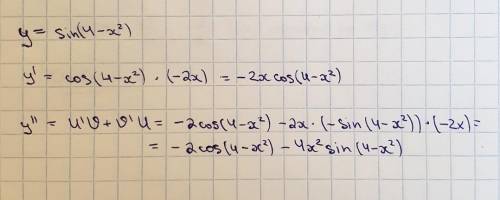 y = sin(4-x²)
y' = cos(4-x²) · (-2x) = -2x cos(4-x²)
y'' = u'v + v'u = -2cos(4-x²) - 2x · (-sin(4-x²)) · (-2x) =
= -2cos(4-x²) - 4x² sin(4-x²)